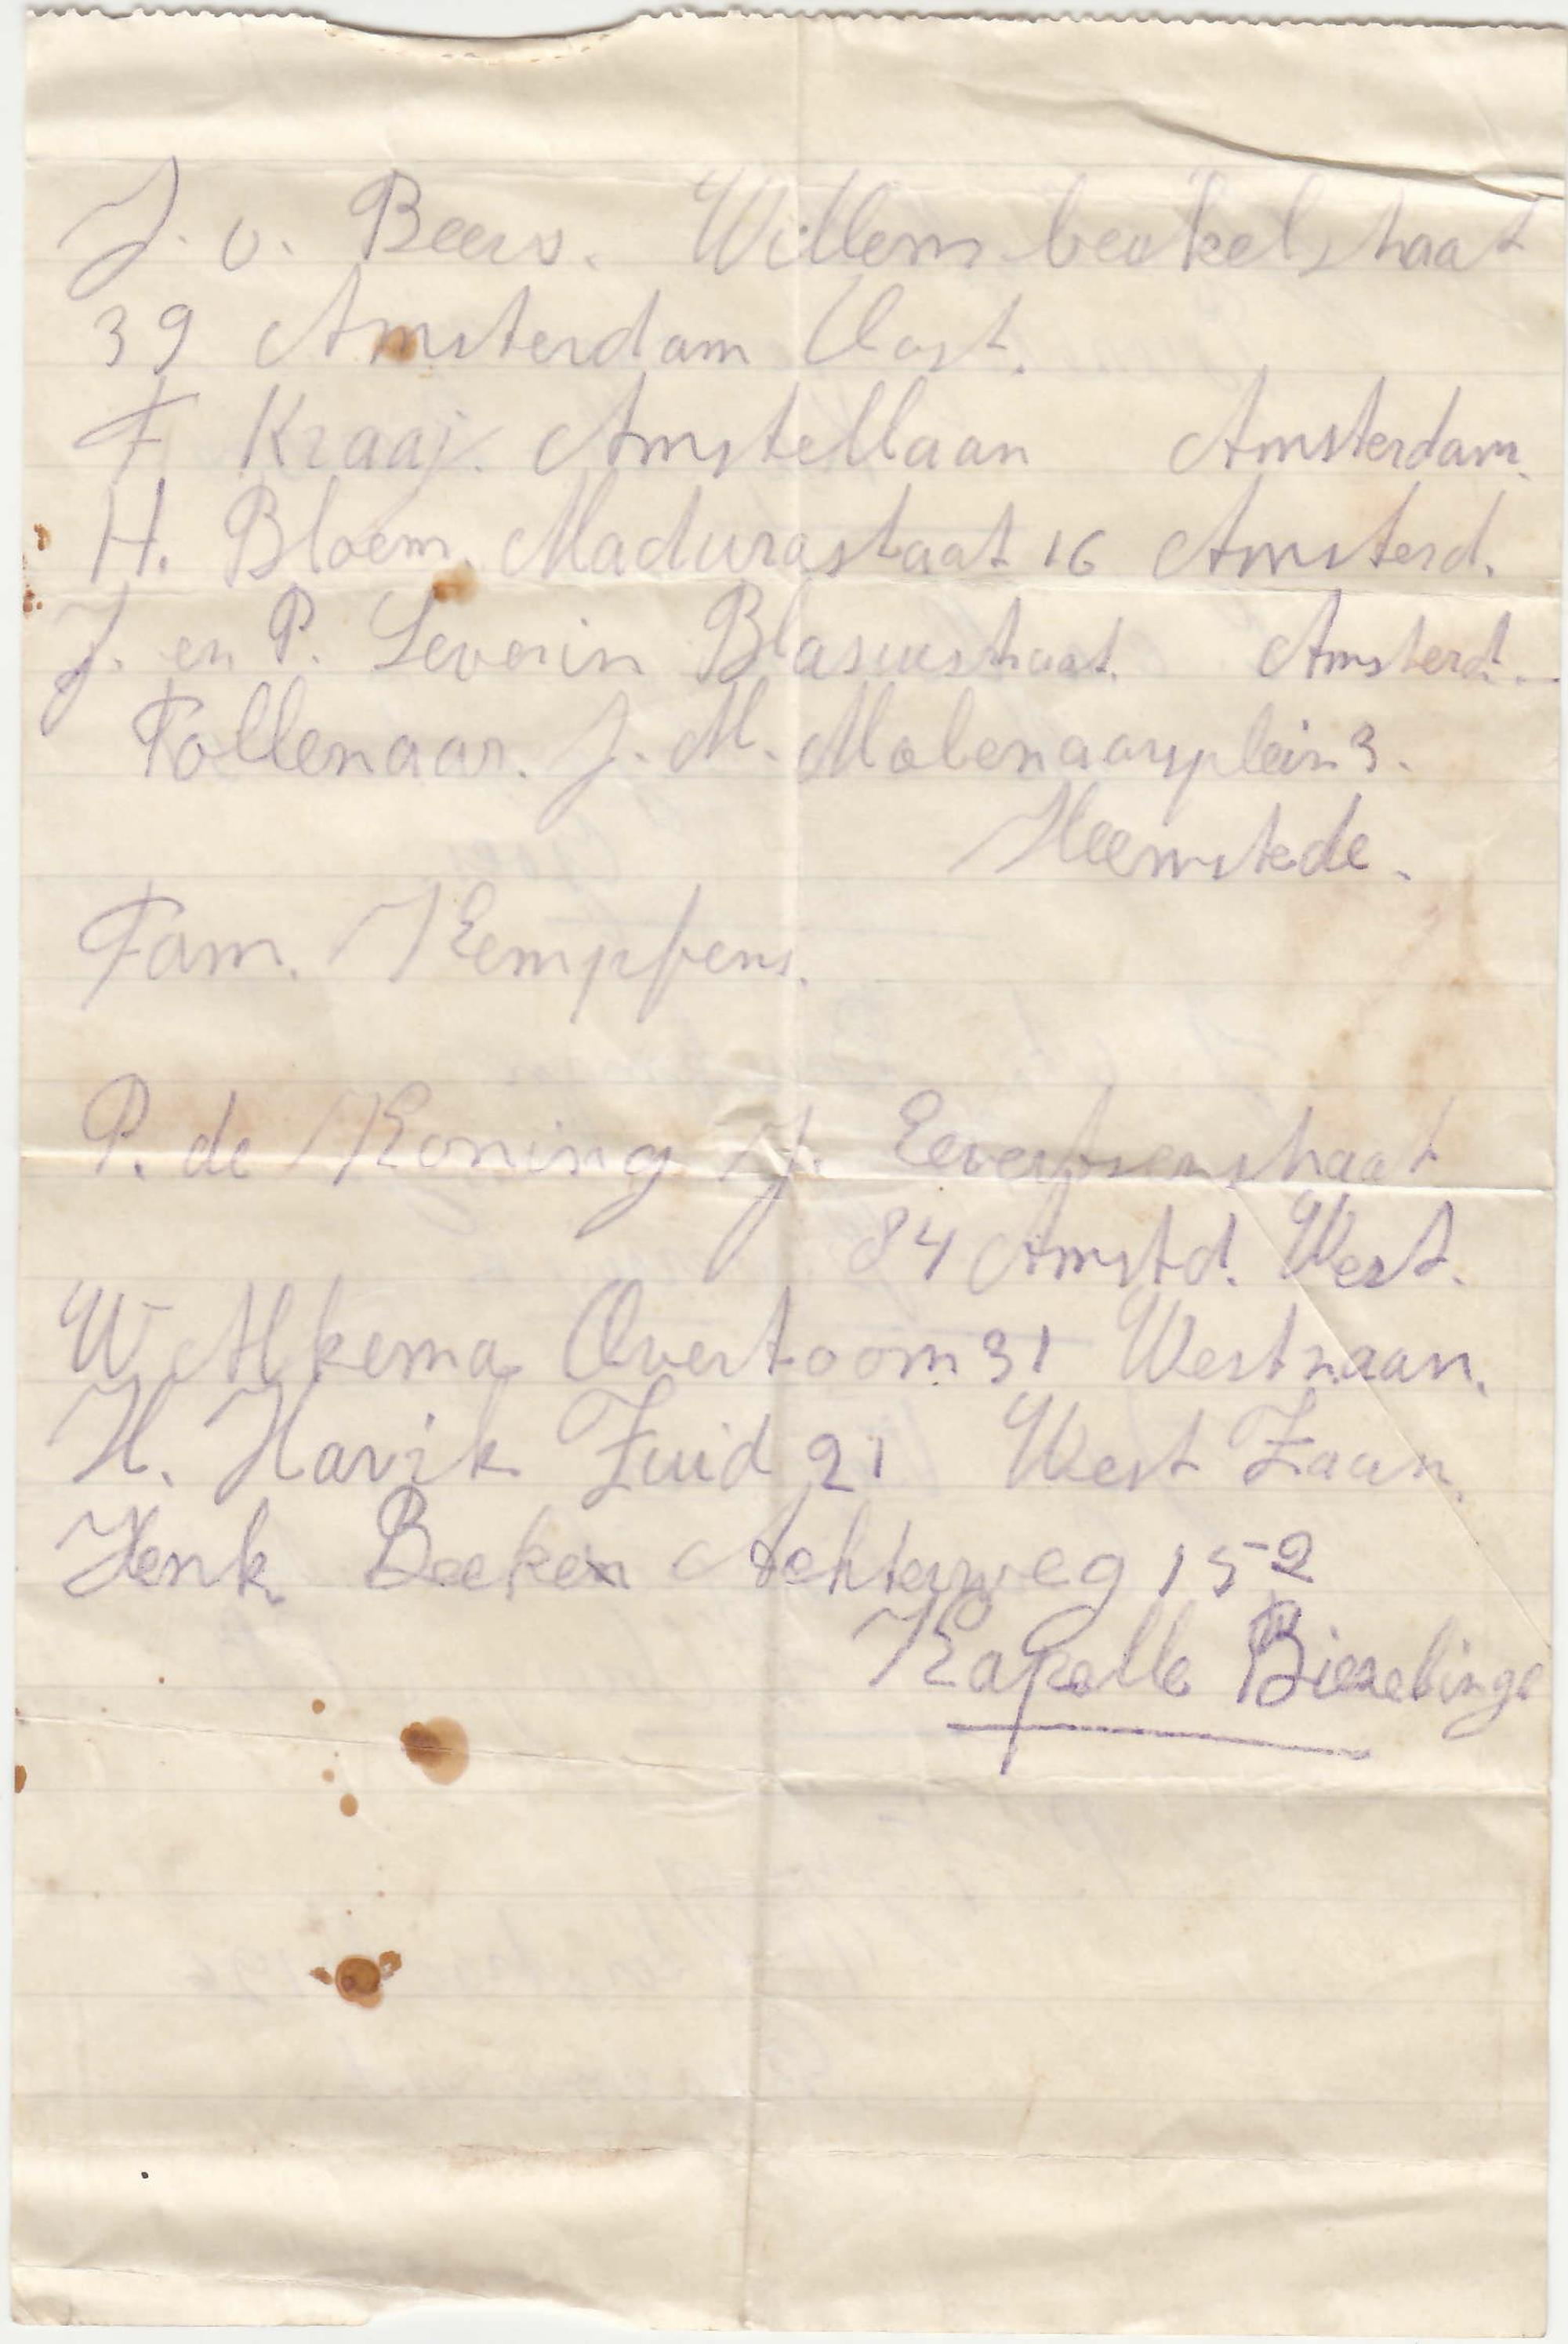 J. v. Beers. Willem beukelstraat
39 Amsterdam Oost.
F Kraaij. Amstellaan Amsterdam.
H. Bloem. Madurastaat 16 Amsterd.
J. en P. Severin Blasiusstraat. Amsterd.
Follenaar. J. M. Molenaarsplein 3.
Heemstede.
Fam. Kempfens.
P. de Koning J. Eevertsenstraat
84 Amstd. West.
W. Alkema Overtoom 31 Westzaan.
H. Havik Zuid 21 West Zaan.
Henk Boeken Achterweg 152
Kapelle Biezelinge